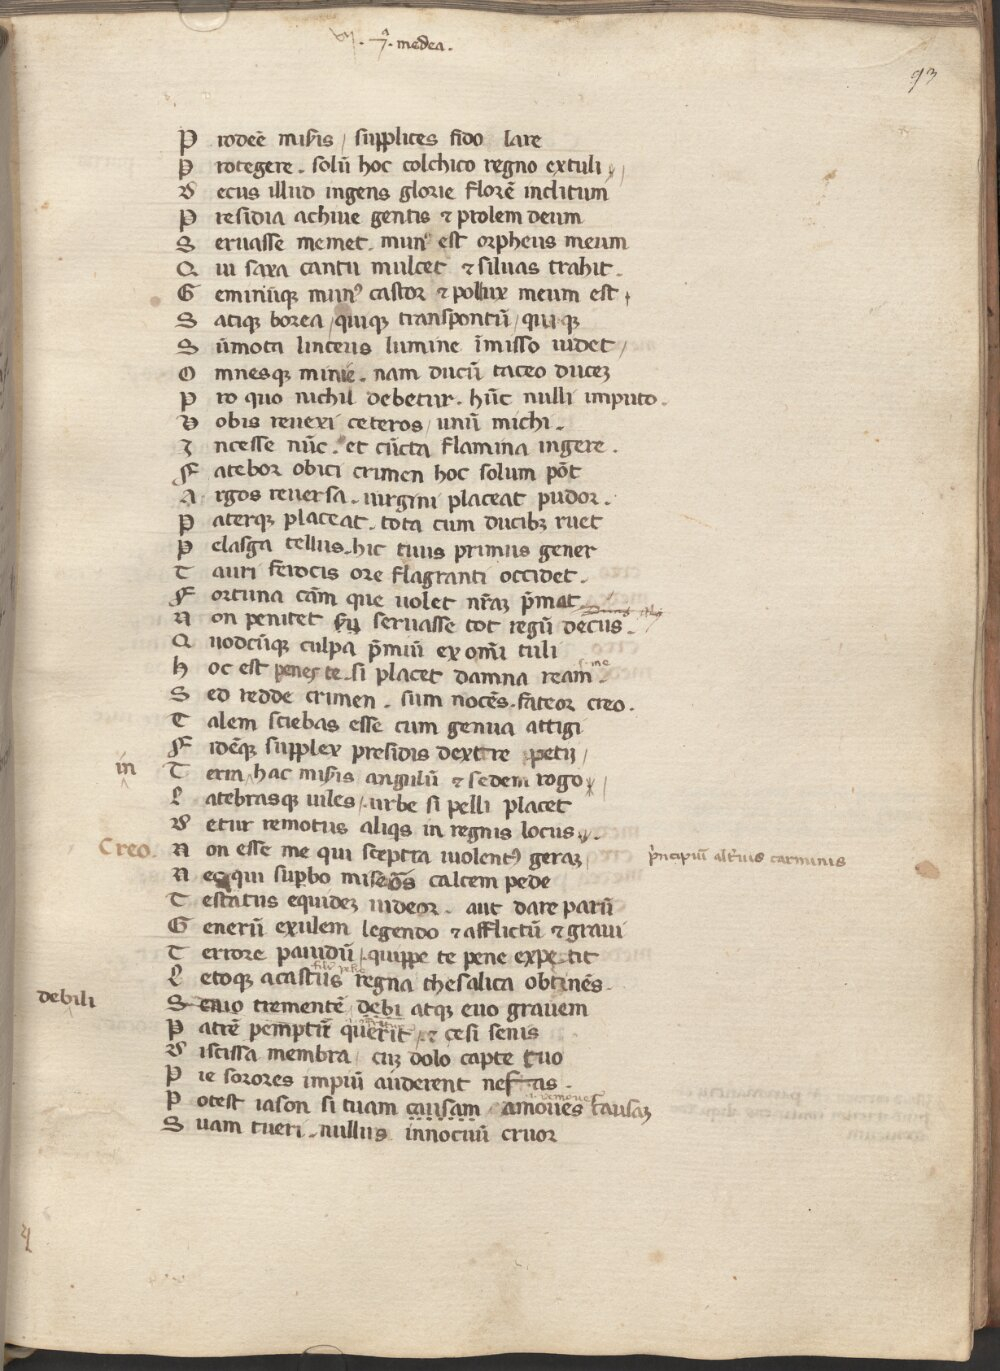 vij · 7ª · medea ·
93
P rodeē miẜis / supplices fido lare
P rotegere . solū hoc colchico regno extuli
D ecus illud ingens glorie florē inclitum
P residia achiue gentis ⁊ prolem deum
S eruasse memet . munꝰ est orpheus meum
Q ui saxa cantu mulcet ⁊ siluas trahit .
G eminūqꝫ munꝰ castor ⁊ pollux meum est
S atiqꝫ borea / quiqꝫ transpontū / quiqꝫ
S ūmota linceus lumine īmisso uidet /
O mnesqꝫ minie . nam ducū taceo duceꝫ
P ro quo nichil debetur . hūc nulli imputo .
V obis reuexi ceteros / unū michi .
I ncesse nūc . et cūcta flamina ingere .
F atebor obici crimen hoc solum pōt
A rgos reuersa . uirgini placeat pudor .
P aterqꝫ placeat . tota cum ducibꝫ ruet
P elasga tellus . hic tuus primus gener
T auri ferocis ore flagranti occidet .
F ortuna cām que uolet nr̄aꝫ p̄mat
N on penitet seruasse tot regū decus .
Q uodcūqꝫ culpa p̄miū ex om̄i tuli
s. me
H oc est penes te . si placet damna ream .
S ed redde crimen . sum nocēs . fateor creo .
T alem sciebas esse cum genua attigi
F idēqꝫ supplex presidis dextre petij /
in T erra hac miẜis angulū ⁊ sedem rogo
L atebrasqꝫ uiles / urbe si pelli placet
D etur remotus aliqs in regnis locus .
Creo . N on esse me qui sceptra uiolentꝰ geraꝫ p̄ncipiū alterius carminis
N ec qui supbo miseōs calcem pede
T estatus equideꝫ uideor . aut dare parū
G enerū exulem legendo ⁊ afflictū ⁊ graui
T errore pauidū / quippe te pene expetit
L etoqꝫ acastus regna thesalica obtinēs .
debili S enio trementē debi atqꝫ euo grauem
P atrē pemptū querit / ⁊ cesi senis
D iscissa membra / cuꝫ dolo capte tuo
P ie sorores impiū auderent nefas .
P otest iason si tuam causam amoues causaꝫ
S uam tueri . nullus innocuū cruor